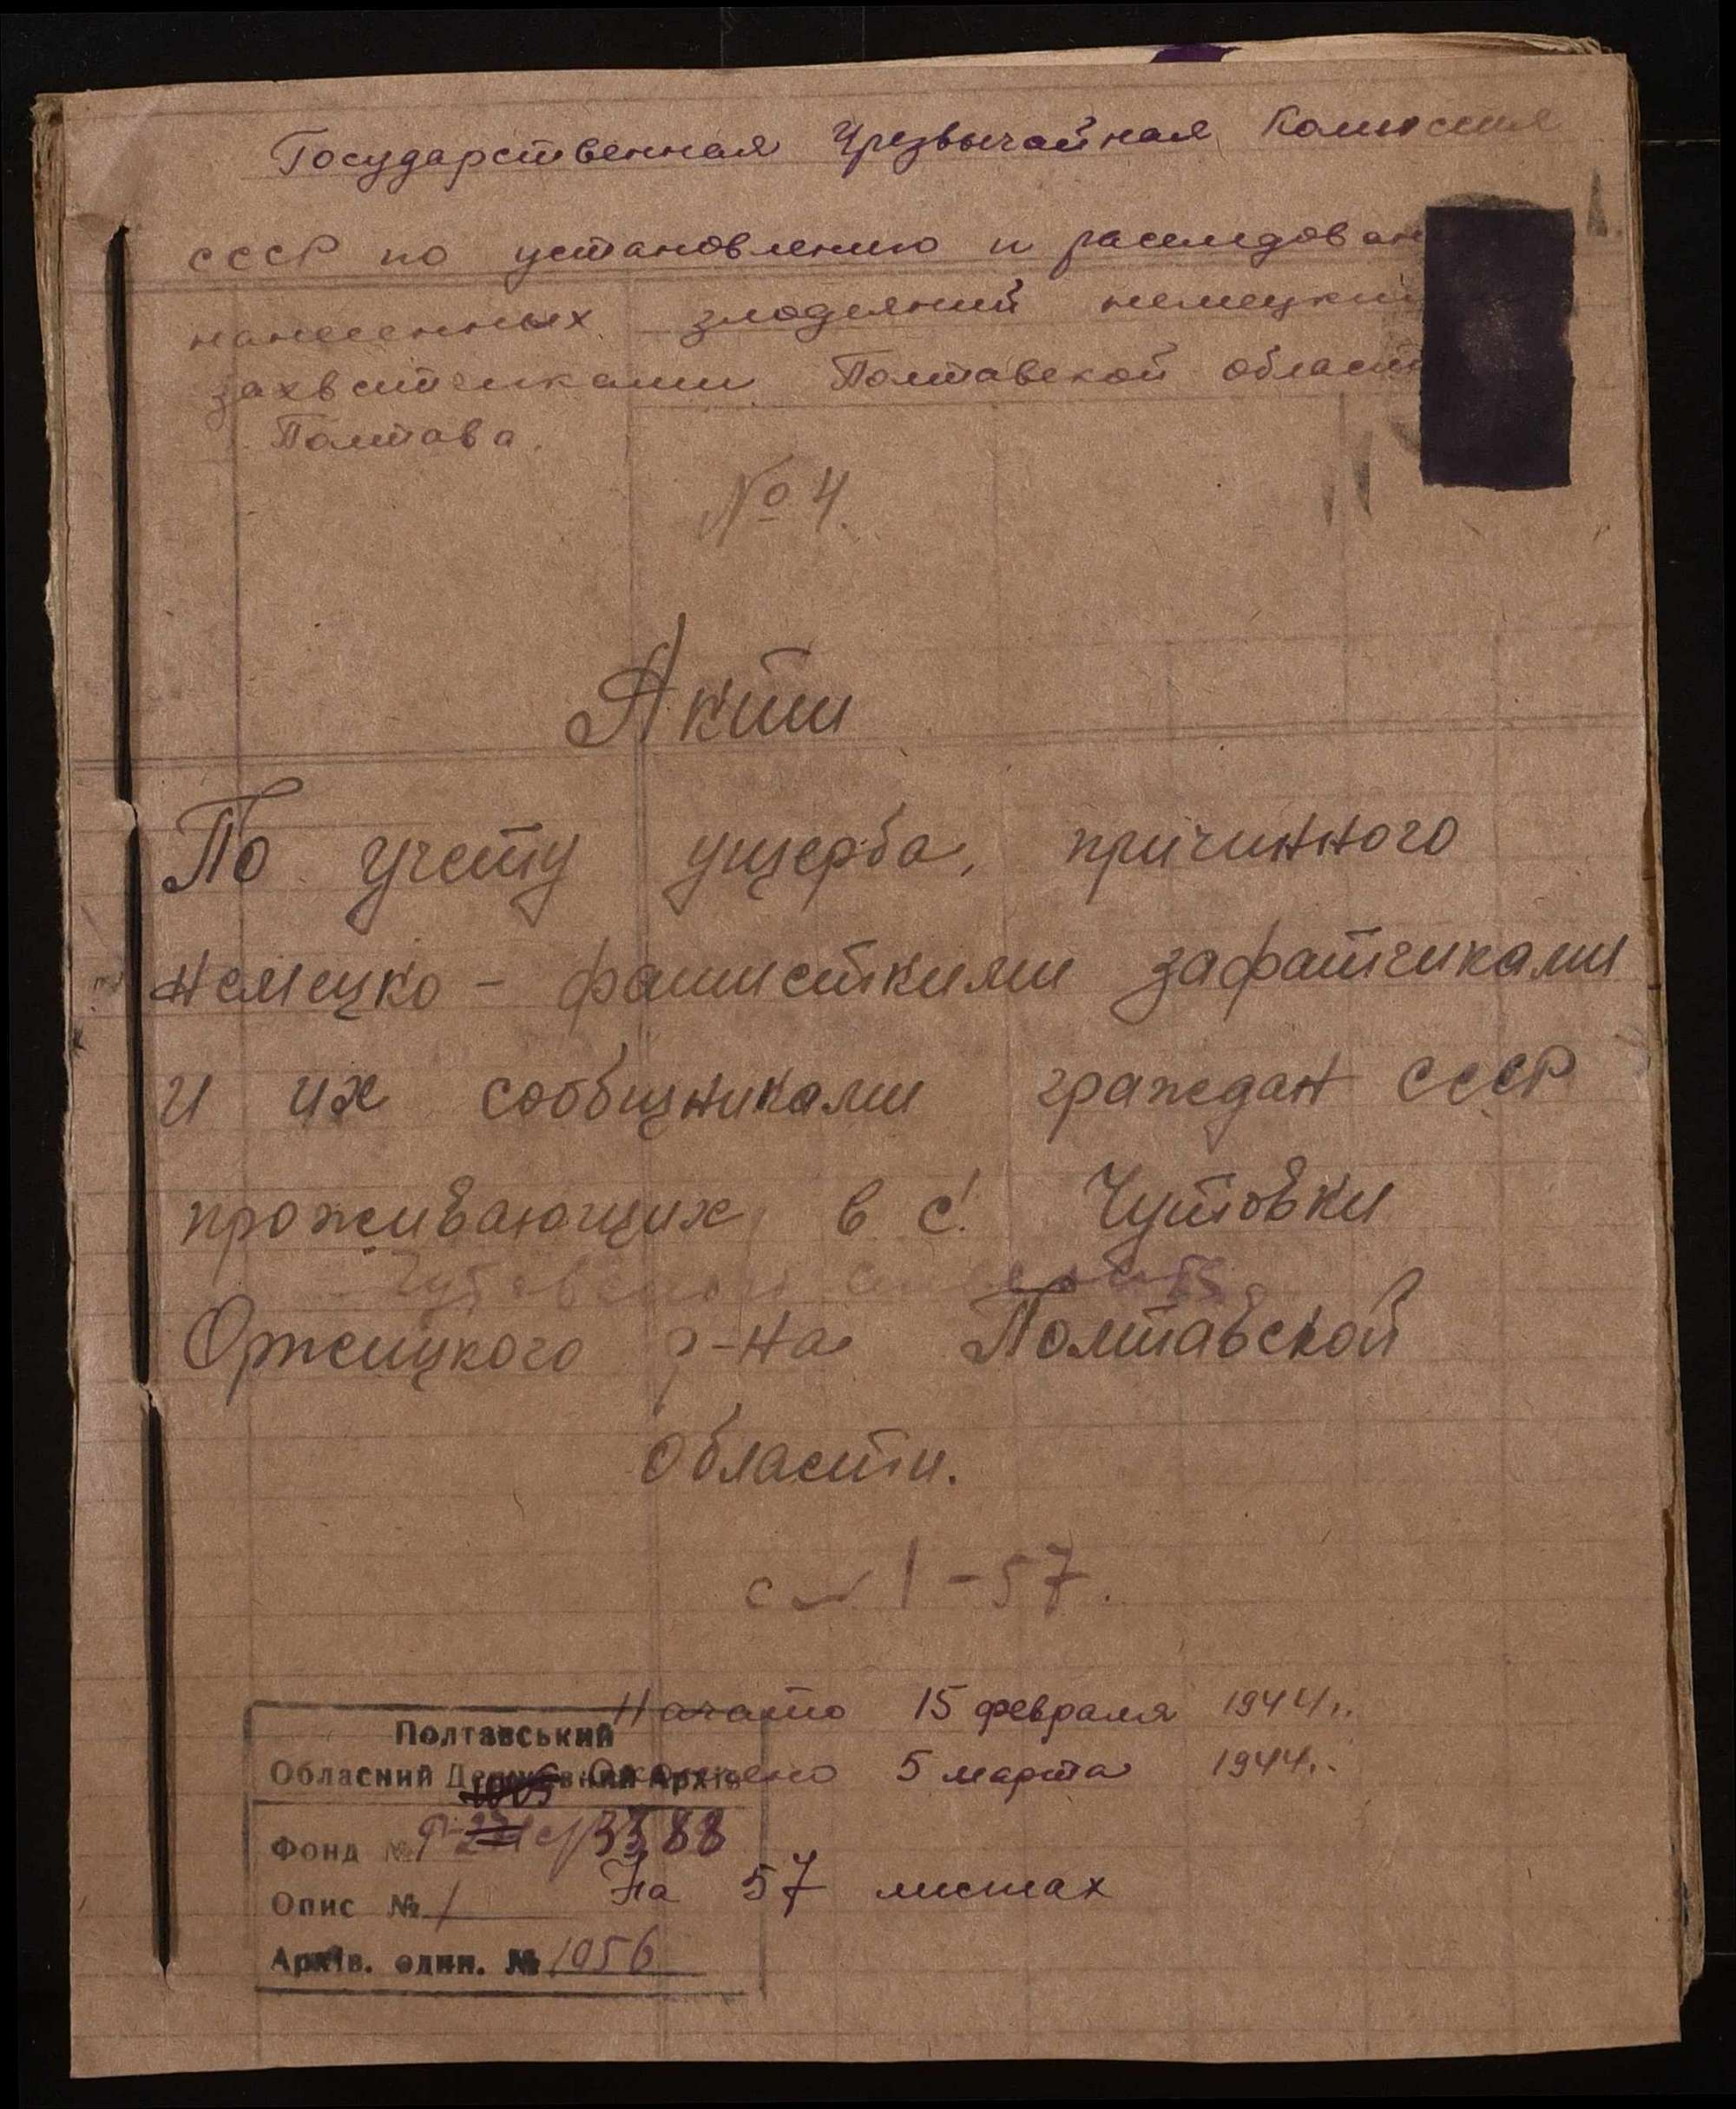 Государственная Чрезвычайная Комиссия
СССР по установлению и расследован
нанесенных злодеяний немецки
захватчиками Полтавской област
Полтава.
№ 4.
Акти
По учету ущерба, причинного
немецко - фашисткими зафатчиками
и их сообщниками граждан СССР
проживающих в с. Чутовки
Оржицкого р-на Полтавской
области.
с 1-57.
Начато 15 февраля 1944 г.
Окончено 5 марта 1944 г.
На 57 листах
Полтавський
Обласний Державний Архів
Фонд № Р 3388
Опис № 1
Архів. один. № 1056